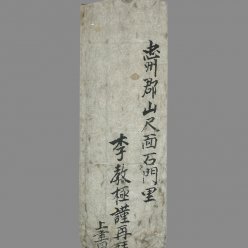 忠州郡山尺面石門里
李教極謹再拝
上書